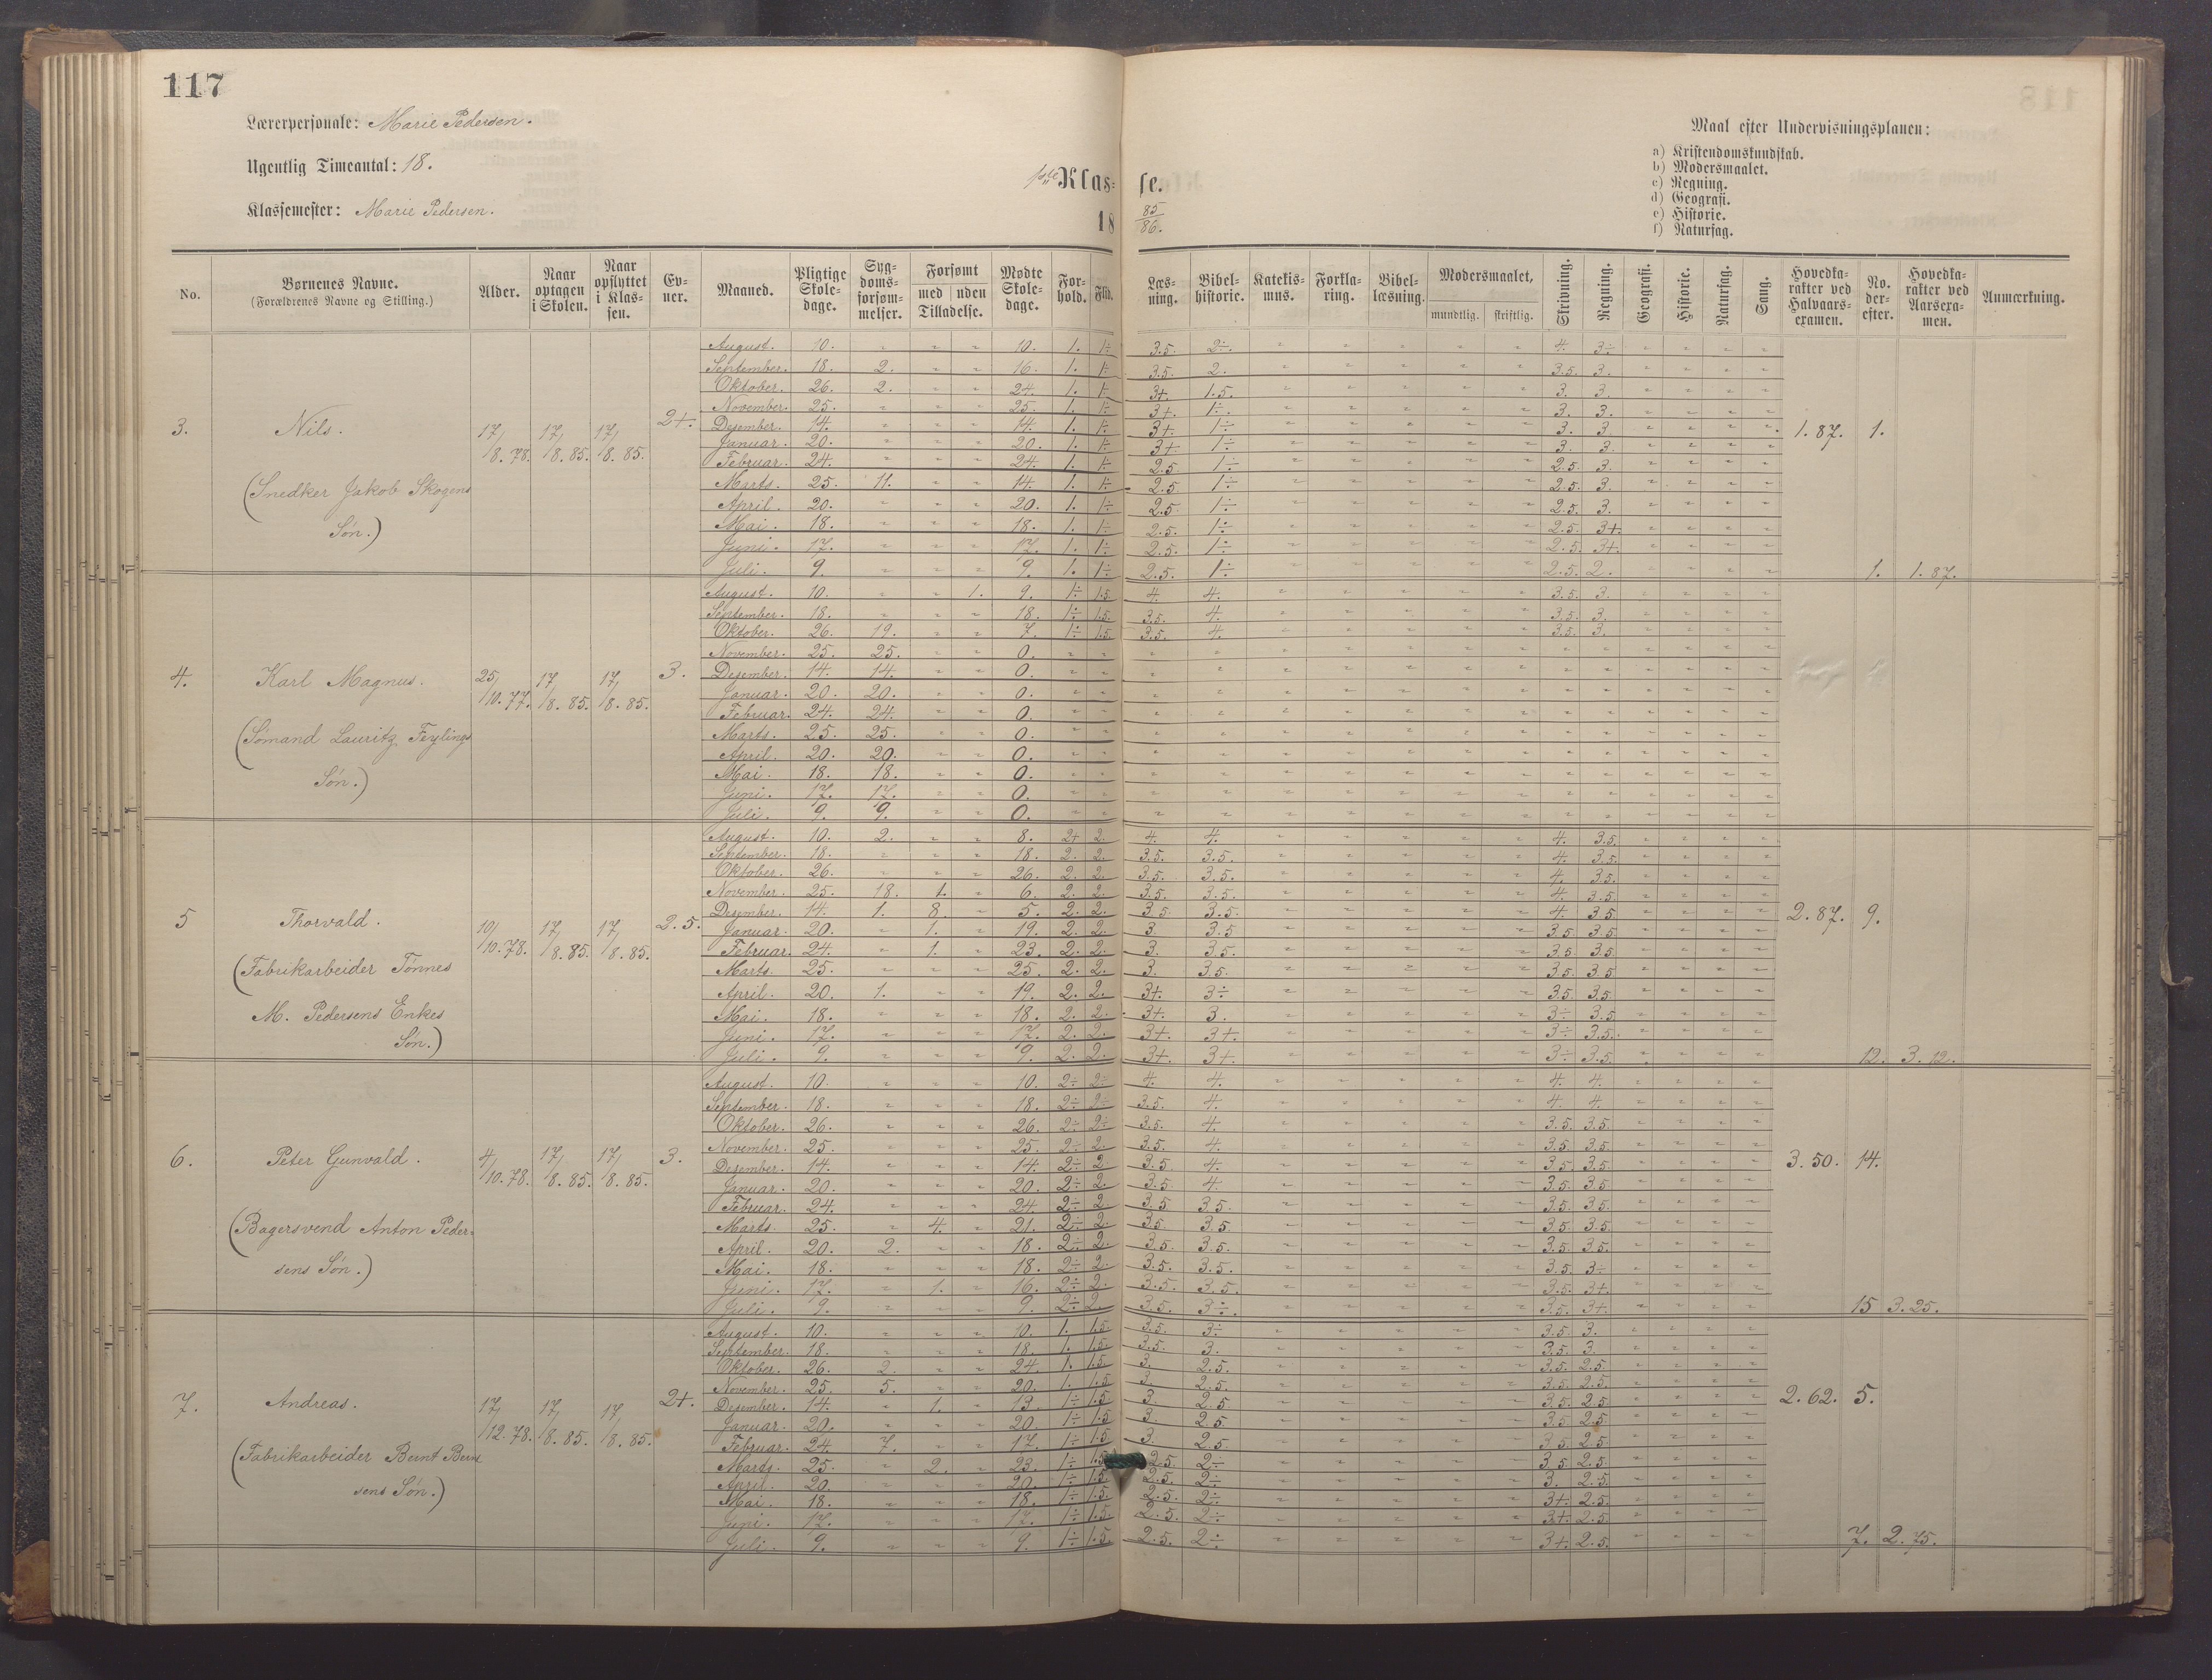 117
Lærerpersonale: Marie Pedersen.
Ugentlig Timeantal: 18.
Klassemester: Marie Pedersen.
Klasse.
18 85/86.
Maal efter Undervisningsplanen:
a) Kristendomskundskab.
b) Modersmaalet.
c) Regning.
d) Geografi.
e) Historie.
f) Naturfag.
No. Børnenes Navne. (Forældrenes Navne og Stilling.) Alder. Naar optagen i Skolen. Naar opflyttet i Klassen. Evner. Maaned. Pligtige Skoledage. Sygdomsforsømmelser. Forsømt med uden Tilladelse. Mødte Skoledage. Forhold. Flid. Læsning. Bibelhistorie. Katekismus. Forklaring. Bibellæsning. Modersmaalet, mundtlig. skriftlig. Skrivning. Regning. Geografi. Historie. Naturfag. Sang. Hovedkarakter ved Halvaarsexamen. No. derefter. Hovedkarakter ved Aarsexamen. Anmærkning.
3. Nils. (Snedker Jakob Skogens Søn.) 17/8.78. 17/8.85. 17/8.85. 2+. 1.87. 1.
August. 10. " " " 10. 1. 1÷ 3.5. 2÷. " " " " " 4. 3÷ " " " "
September. 18. 2. " " 16. 1. 1÷ 3.5. 2. " " " " " 3.5. 3. " " " "
Oktober. 26. 2. " " 24. 1. 1÷ 3+. 1.5. " " " " " 3. 3. " " " "
November. 25. " " " 25. 1. 1÷ 3+. 1÷. " " " " " 3. 3. " " " "
Desember. 14. " " " 14. 1. 1÷ 3+ 1÷ " " " " " 3. 3. " " " "
Januar. 20. " " " 20. 1. 1÷ 3+ 1÷ " " " " " 3. 3. " " " "
Februar. 24. " " " 24. 1. 1÷ 2.5 1÷ " " " " " 2.5. 3. " " " "
Marts. 25. 11. " " 14. 1. 1÷ 2.5 1÷ " " " " " 2.5. 3. " " " "
April. 20. " " " 20. 1. 1÷ 2.5 1÷ " " " " " 2.5. 3. " " " "
Mai. 18. " " " 18. 1. 1÷ 2.5. 1÷ " " " " " 2.5. 3+. " " " "
Juni. 17. " " " 17. 1. 1÷ 2.5. 1÷ " " " " " 2.5. 3+. " " " "
Juli. 9. " " " 9. 1. 1÷ 2.5. 1÷ " " " " " 2.5. 2. " " " " 1. 1.87.
4. Karl Magnus. (Sømand Lauritz Feylings Søn.) 25/10.77. 17/8.85. 17/8.85. 3.
August. 10. " " 1. 9. 1÷ 1.5. 4. 4. " " " " " 3.5. 3. " " " "
September. 18. " " " 18. 1÷ 1.5. 3.5. 4. " " " " " 3.5. 3. " " " "
Oktober. 26. 19. " " 7. 1÷ 1.5. 3.5. 4. " " " " " 3.5. 3. " " " "
November. 25. 25. " " 0. " " " " " " " " " " " " " " "
Desember. 14. 14. " " 0. " " " " " " " " " " " " " " "
Januar. 20. 20. " " 0. " " " " " " " " " " " " " " "
Februar. 24. 24. " " 0. " " " " " " " " " " " " " " "
Marts. 25. 25. " " 0. " " " " " " " " " " " " " " "
April. 20. 20. " " 0. " " " " " " " " " " " " " " "
Mai. 18. 18. " " 0. " " " " " " " " " " " " " " "
Juni. 17. 17. " " 0. " " " " " " " " " " " " " " "
Juli. 9. 9. " " 0. " " " " " " " " " " " " " " "
5 Thorvald. (Fabrikarbeider Tønnes M. Pedersens Enkes Søn.) 10/10.78. 17/8.85. 17/8.85. 2.5. 2.87. 9.
August. 10. 2. " " 8. 2+ 2. 4. 4. " " " " " 4. 3.5. " " " "
September. 18. " " " 18. 2. 2. 3.5. 3.5. " " " " " 4. 3.5. " " " "
Oktober. 26. " " " 26. 2. 2. 3.5. 3.5. " " " " " 4. 3.5. " " " "
November. 25. 18. 1. " 6. 2. 2. 3.5. 3.5. " " " " " 4. 3.5. " " " "
Desember. 14. 1. 8. " 5. 2. 2. 3.5. 3.5. " " " " " 4. 3.5 " " " "
Januar. 20. " 1. " 19. 2. 2. 3. 3.5 " " " " " 3.5 3.5. " " " "
Februar. 24. " 1. " 23. 2. 2. 3. 3.5. " " " " " 3.5. 3.5. " " " "
Marts. 25. " " " 25. 2. 2. 3. 3.5. " " " " " 3.5. 3.5 " " " "
April. 20. 1. " " 19. 2. 2. 3+. 3÷ " " " " " 3.5. 3.5 " " " "
Mai. 18. " " " 18. 2. 2. 3+. 3. " " " " " 3÷ 3.5 " " " "
Juni. 17. " " " 17. 2. 2. 3+. 3+. " " " " " 3÷ 3.5. " " " "
Juli. 9. " " " 9. 2. 2. 3+. 3+. " " " " " 3÷ 3.5. " " " " 12. 3.12.
6. Peter Gunvald. (Bagersvend Anton Pedersens Søn.) 4/10.78. 17/8.85. 17/8.85. 3. 3.50. 14.
August. 10. " " " 10. 2÷ 2÷ 4. 4. " " " " " 4. 4. " " " "
September. 18. " " " 18. 2÷ 2÷ 3.5. 4. " " " " " 4. 4. " " " "
Oktober. 26. " " " 26. 2÷ 2÷ 3.5. 4. " " " " " 3.5. 3.5. " " " "
November. 25. " " " 25. 2÷ 2. 3.5. 4. " " " " " 3.5 3.5. " " " "
Desember. 14. " " " 14. 2÷ 2. 3.5 4. " " " " " 3.5 3.5. " " " "
Januar. 20. " " " 20. 2÷ 2. 3.5 4. " " " " " 3.5. 3.5 " " " "
Februar. 24. " " " 24. 2÷ 2. 3.5 3.5. " " " " " 3.5. 3.5. " " " "
Marts. 25. " 4. " 21. 2÷ 2. 3.5. 3.5. " " " " " 3.5. 3.5. " " " "
April. 20. 2. " " 18. 2÷ 2. 3.5. 3.5. " " " " " 3.5. 3.5. " " " "
Mai. 18. " " " 18. 2÷ 2. 3.5. 3.5. " " " " " 3.5. 3÷ " " " "
Juni. 17. " 1. " 16. 2÷ 2. 3.5. 3.5. " " " " " 3.5. 3+. " " " "
Juli. 9. " " " 9. 2÷ 2. 3.5. 3÷. " " " " " 3.5. 3+. " " " " 15 3.25.
7. Andreas. (Fabrikarbeider Bernt Bernsens Søn.) 17/12.78. 17/8.85. 17/8.85. 2+. 2.62. 5.
August. 10. " " " 10. 1. 1.5. 3.5. 3÷ " " " " " 3.5. 3. " " " "
September. 18. " " " 18. 1. 1.5. 3.5. 3. " " " " " 3.5. 3. " " " "
Oktober. 26. 2. " " 24. 1. 1.5. 3. 2.5. " " " " " 3.5. 2.5. " " " "
November. 25. 5. " " 20. 1. 1.5 3. 2.5. " " " " " 3.5. 2.5. " " " "
Desember. 14. " 1. " 13. 1÷ 1.5 3. 2.5 " " " " " 3.5. 2.5. " " " "
Januar. 20. " " " 20. 1÷ 1.5 3. 2.5. " " " " " 3.5 2.5 " " " "
Februar. 24. 7. " " 17. 1÷ 1.5 3. 2.5. " " " " " 3.5 2.5. " " " "
Marts. 25. " 2. " 23. 1÷ 1.5 2.5. 2÷ " " " " " 3.5. 2.5. " " " "
April. 20. " " " 20. 1÷ 1.5. 2.5. 2÷ " " " " " 3. 2.5. " " " "
Mai. 18. " " " 18. 1÷ 1.5. 2.5. 2÷ " " " " " 3+. 2.5. " " " "
Juni. 17. " " " 17. 1÷ 1.5. 2.5. 2÷ " " " " " 3+. 2.5 " " " "
Juli. 9. " " " 9. 1÷ 1.5. 2.5. 2÷ " " " " " 3+. 2.5. " " " " 7. 2.75.